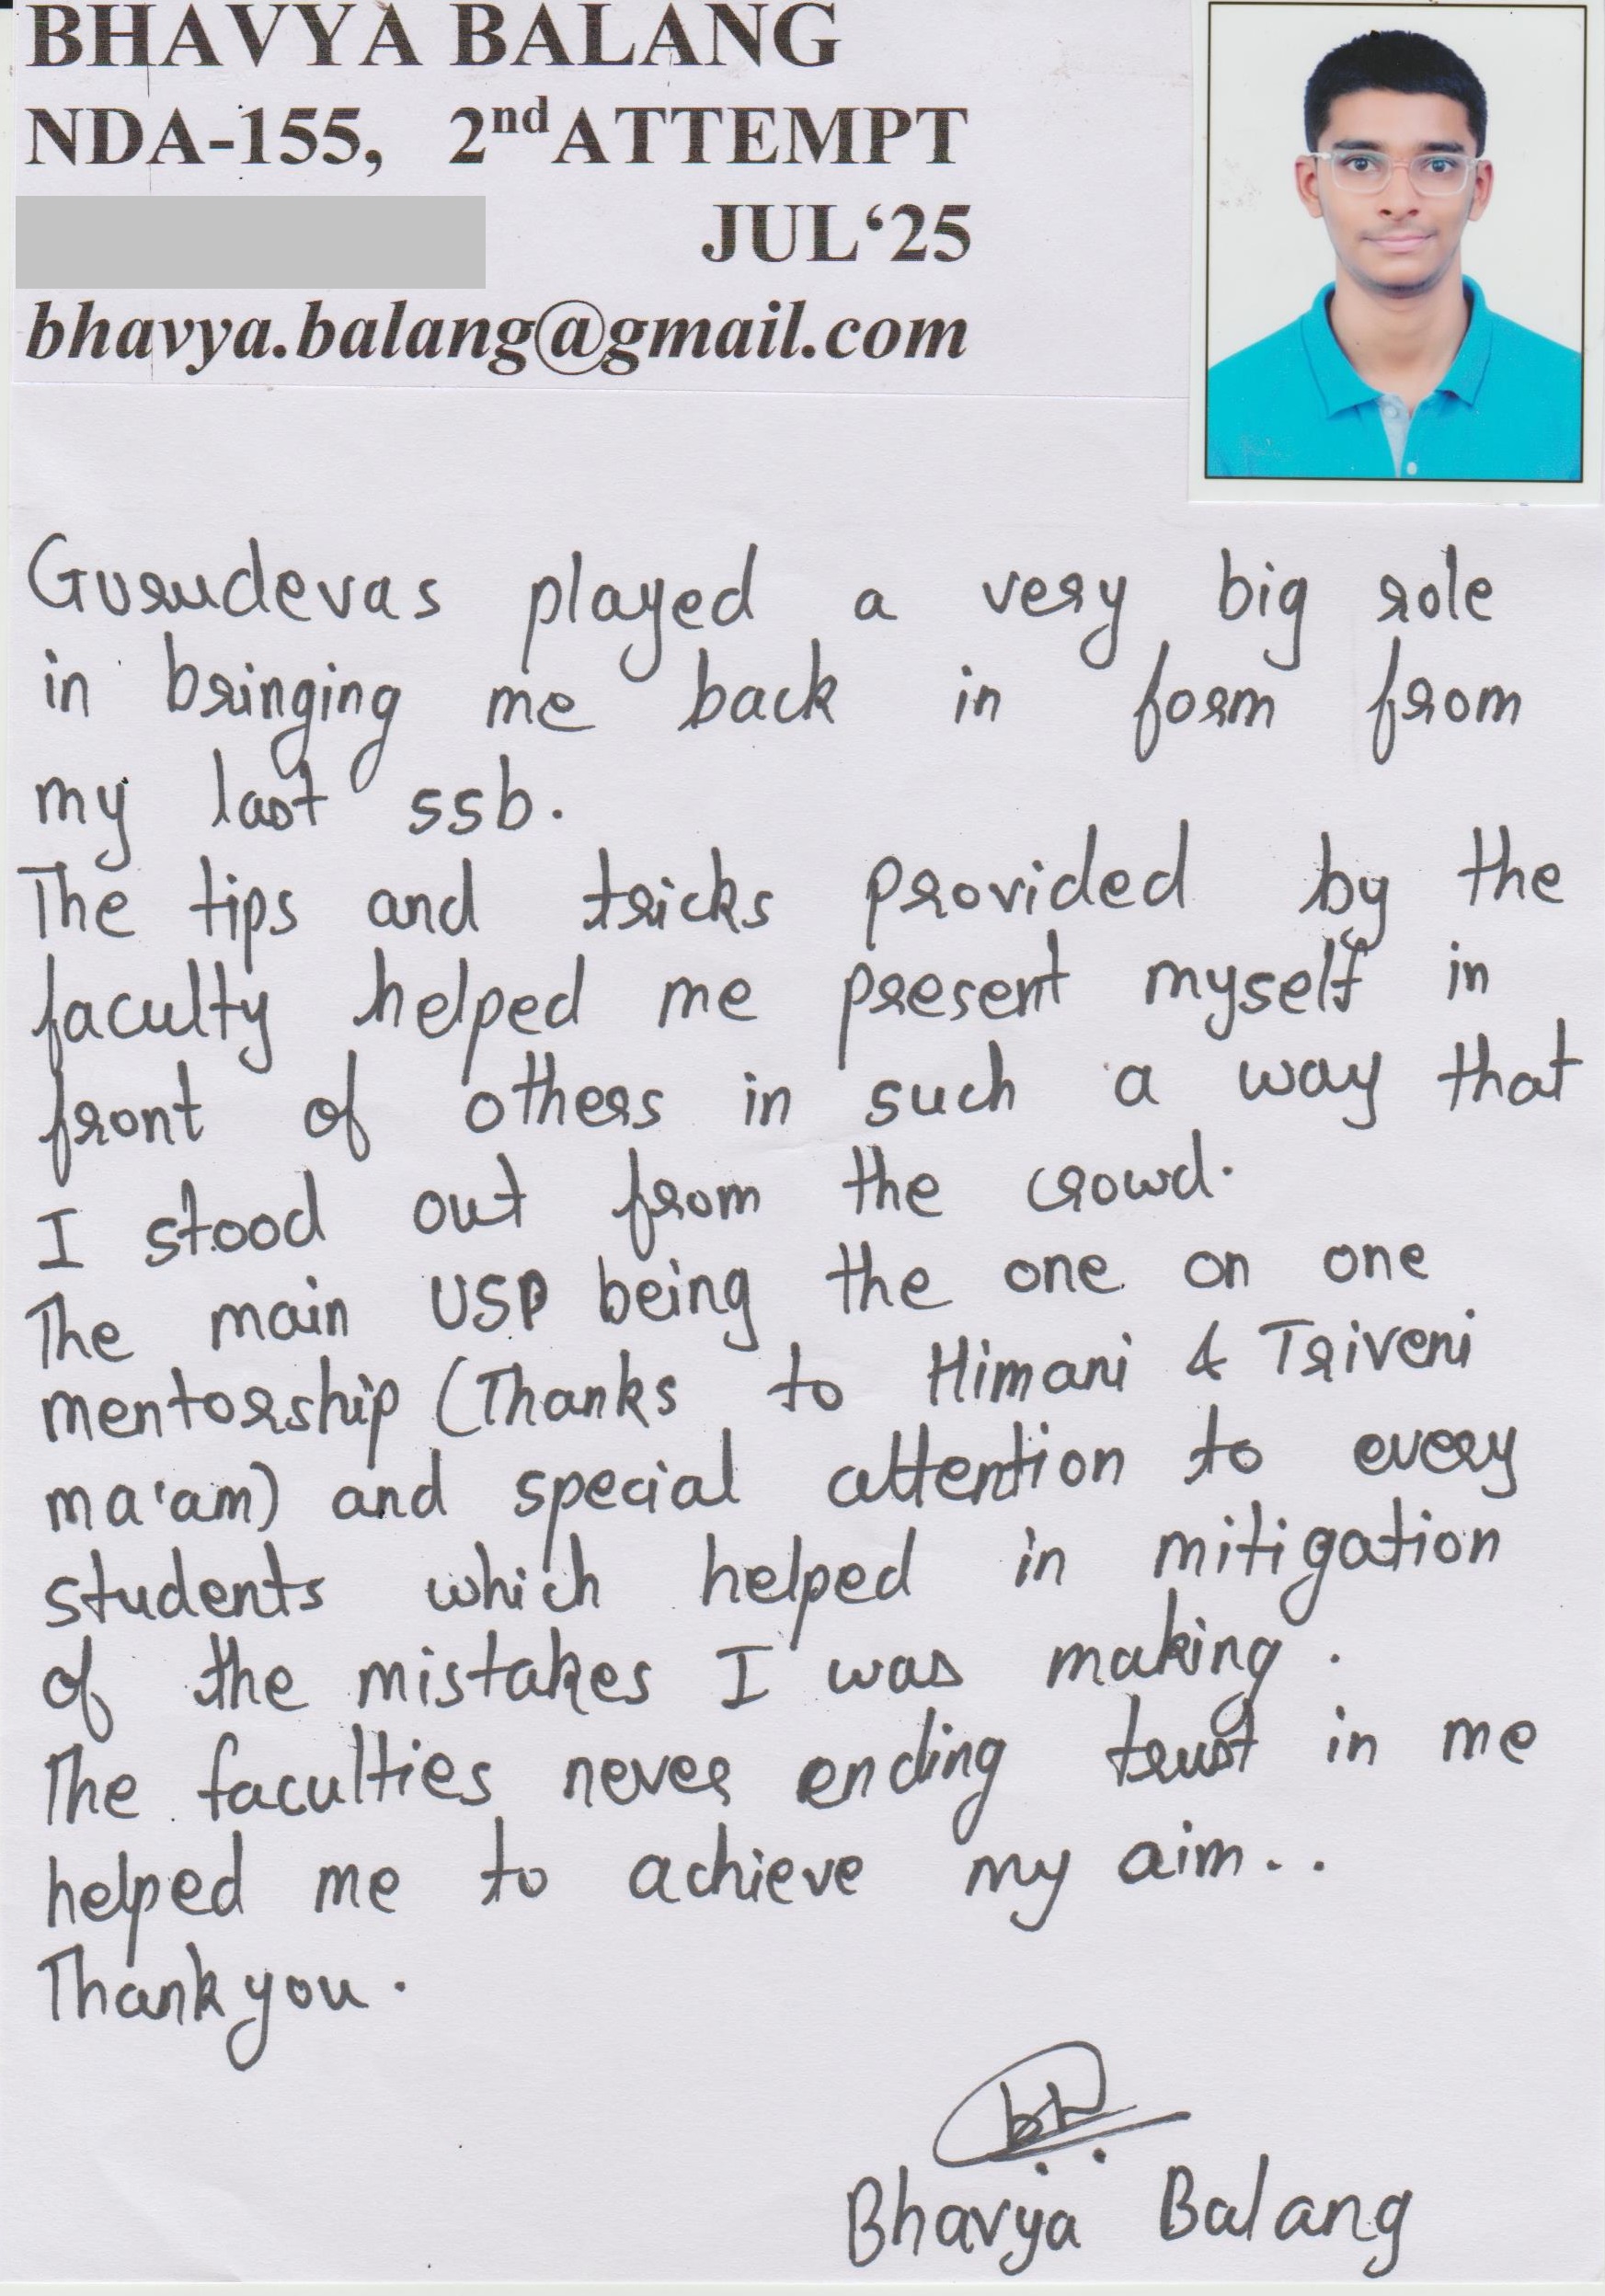 BHAVYA BALANG
NDA-155, 2nd ATTEMPT
JUL‘25
bhavya.balang@gmail.com
Gurudevas played a very big role
in bringing me back in form from
my last ssb.
The tips and tricks provided by the
faculty helped me present myself in
front of others in such a way that
I stood out from the crowd.
The main USP being the one on one
mentorship (Thanks to Himani & Triveni
ma'am) and special attention to every
students which helped in mitigation
of the mistakes I was making.
The faculties never ending trust in me
helped me to achieve my aim..
Thank you.
Bhavya Balang